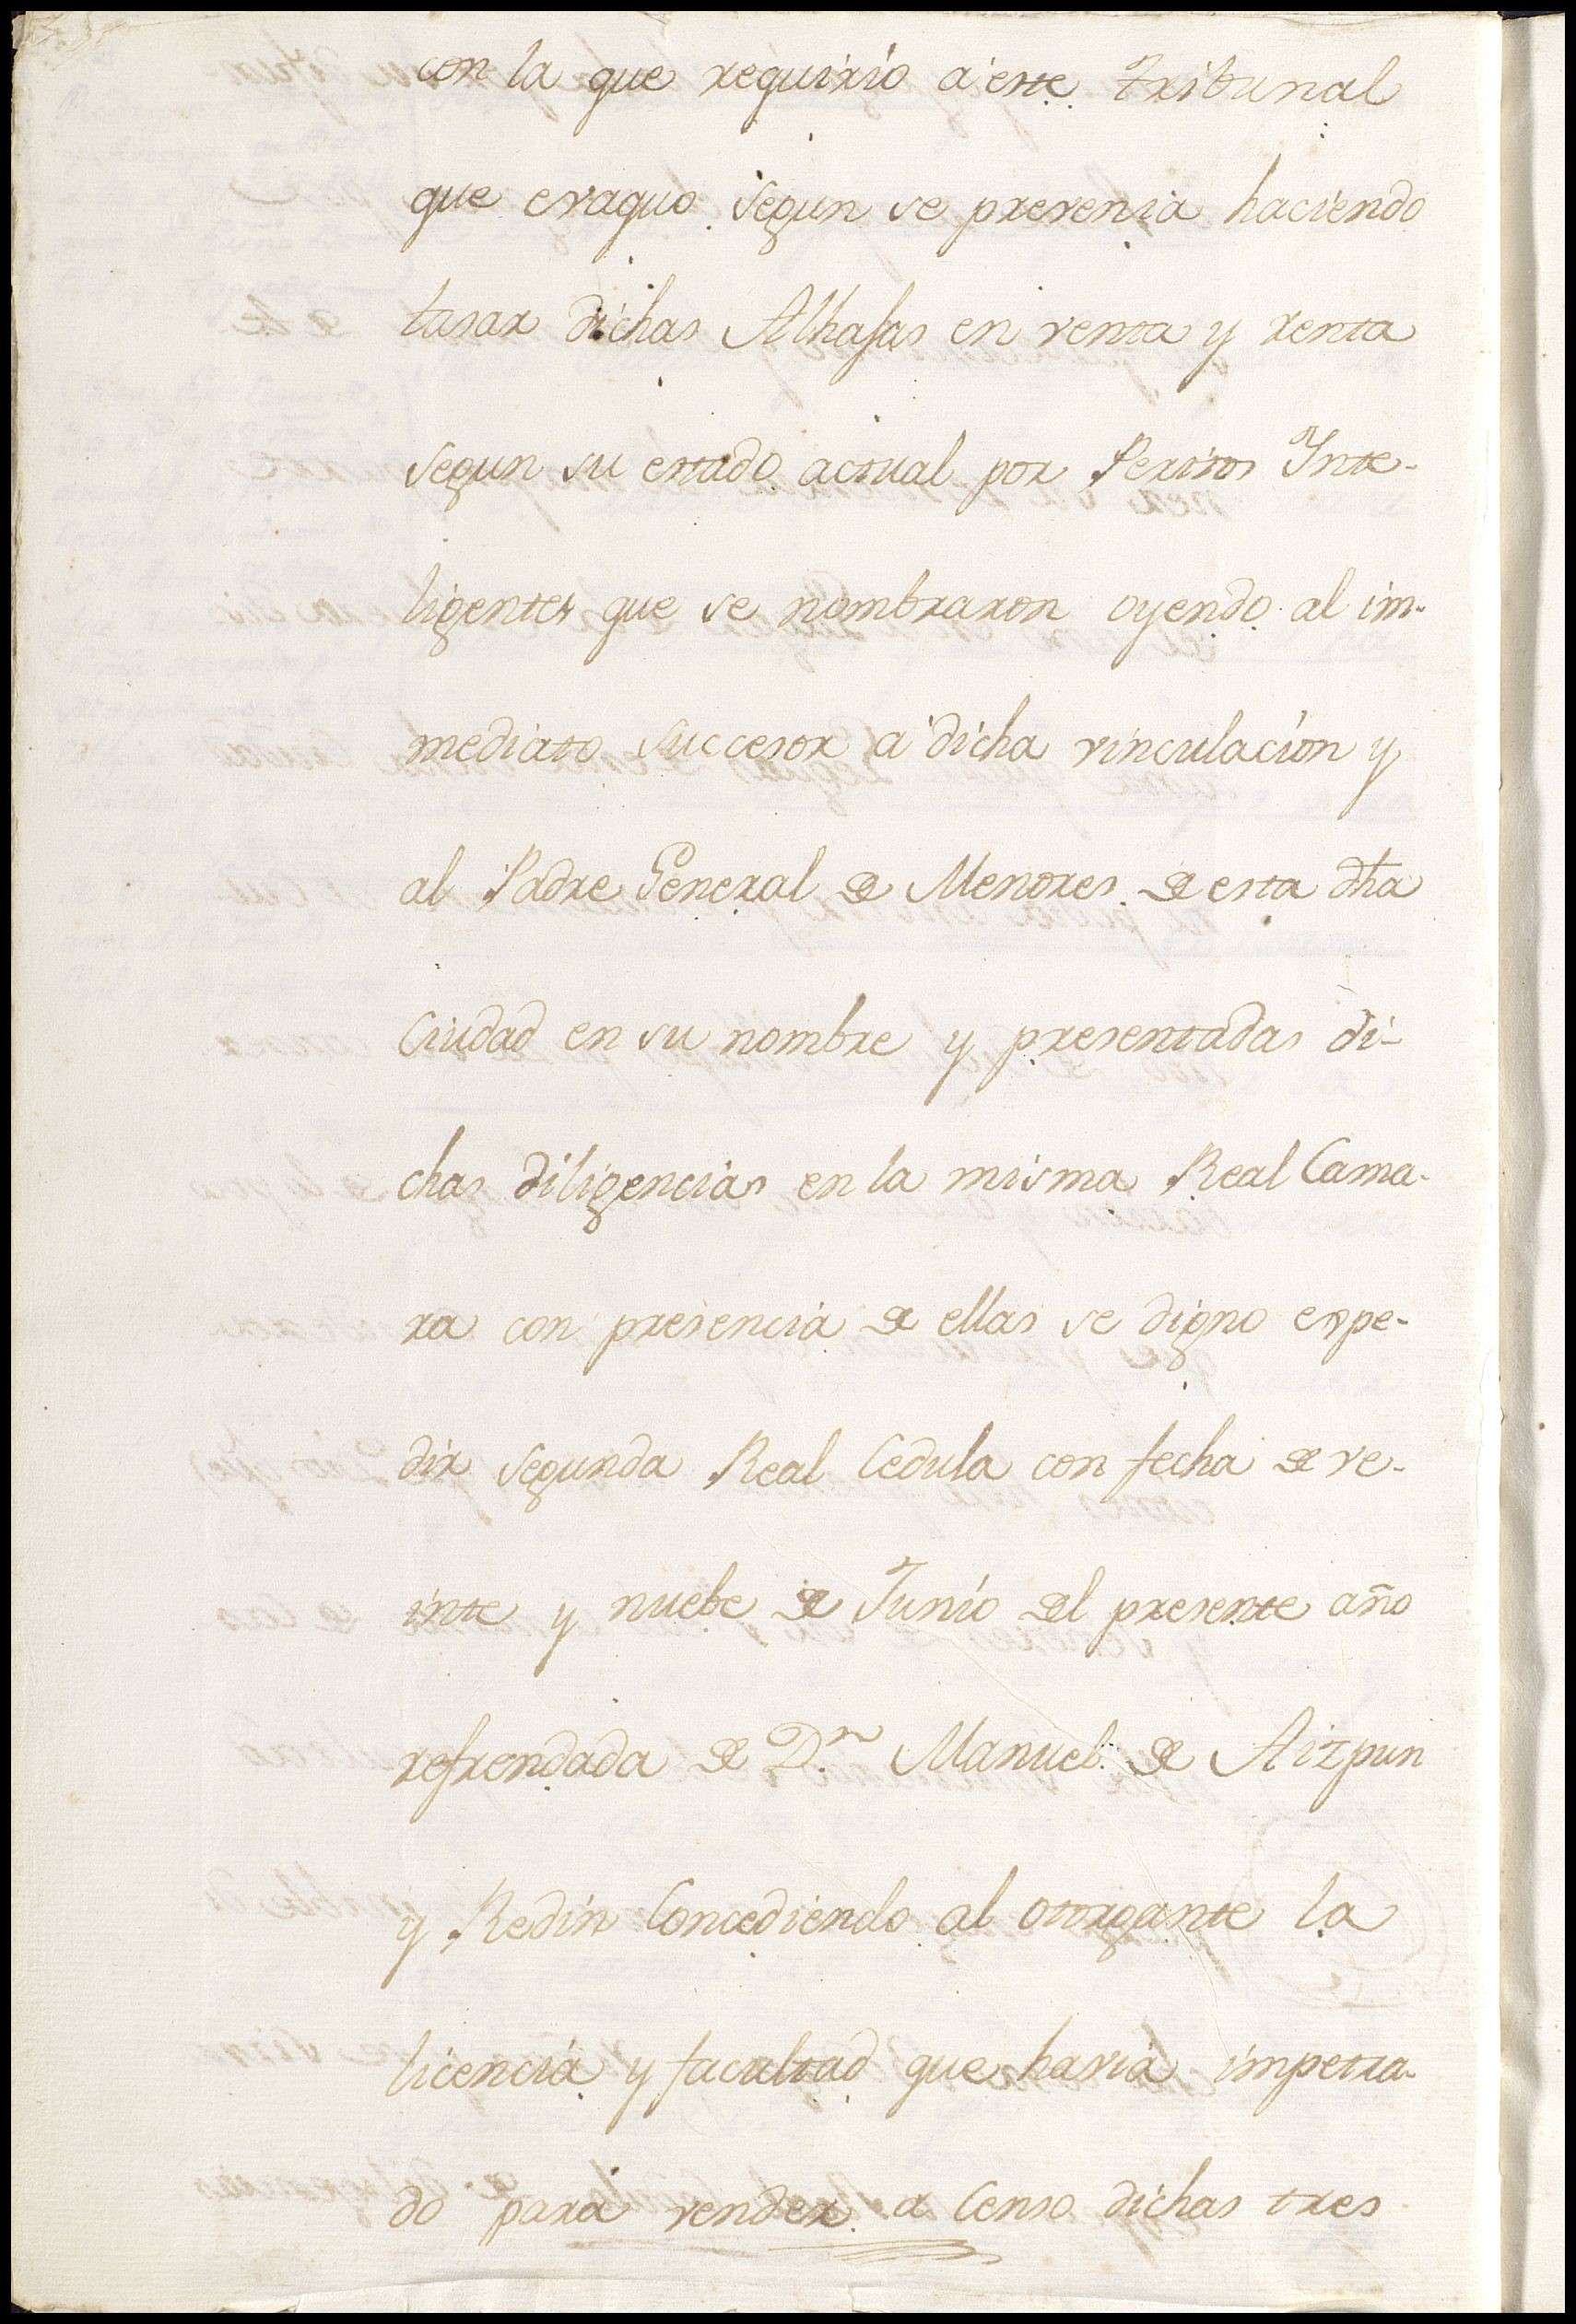 con la que requirio a este tribunal
que evaquo segun se prevenia haciendo
tasar dichas Alhajas en venta y renta
segun su estado actual por Peritos Inte-
ligentes que se nombraron oyendo al im-
mediato succesor a dicha vinculacion y
al Padre General de Menores de esta dha
Ciudad en su nombre y presentadas di-
chas diligencias en la misma Real Cama-
ra con presencia de ellas se digno espe-
dir segunda Real Cedula con fecha de ve-
inte y nuebe de Junio del presente año
refrendada de Dn. Manuel de Aizpun
y Redin Concediendo al otorgante la
licencia y facultad que havia impetra-
do para vender a Censo dichas tres